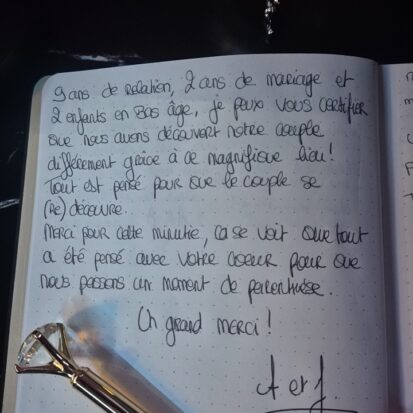 9 ans de relation, 2 ans de mariage et
2 enfants en bas âge, je peux vous certifier
que nous avons découvert notre couple
différement grâce à ce magnifique lieu !
Tout est pensé pour que le couple se
(Re) découvre.
Merci pour cette minutie, ça se voit que tout
a été pensé avec votre coeur pour que
nous passons un moment de parenthèse.
Un grand merci !
A et J.